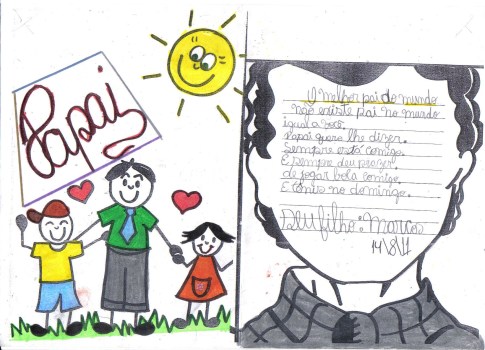 Papai
O melhor pai do mundo
não existe pai no mundo
igual a você.
Papai quero lhe dizer.
Sempre está comigo.
E sempre deu prazer.
de jogar bola comigo.
E conto no domingo.
Seu filho: Marcos
14/8/11